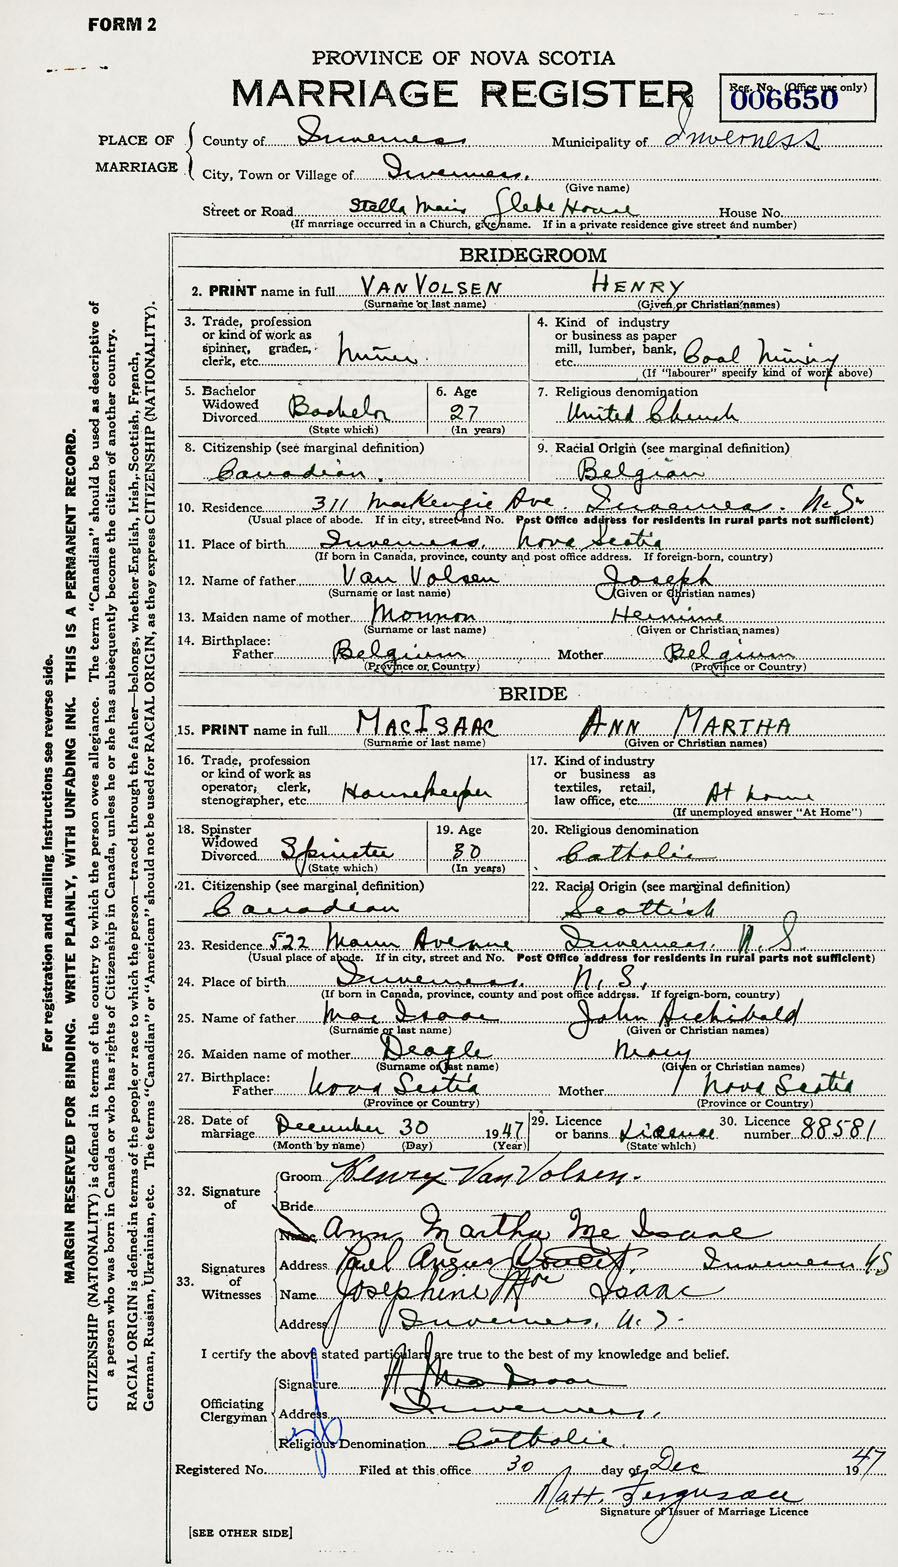 FORM 2
PROVINCE OF NOVA SCOTIA
MARRIAGE REGISTER
Reg. No. (Office use only)
006650
PLACE OF MARRIAGE
County of Inverness Municipality of Inverness
City, Town or Village of Inverness.
(Give name)
Street or Road Stella Maris Glebe House House No.
(If marriage occurred in a Church, give name. If in a private residence give street and number)
BRIDEGROOM
2. PRINT name in full VAN VOLSEN HENRY
(Surname or last name) (Given or Christian names)
3. Trade, profession or kind of work as spinner, grader, clerk, etc. Miner.
4. Kind of industry or business as paper mill, lumber, bank, etc. Coal Mining
(If "labourer" specify kind of work above)
5. Bachelor Widowed Divorced Bachelor
(State which)
6. Age 27
(In years)
7. Religious denomination
United Church
8. Citizenship (see marginal definition)
Canadian.
9. Racial Origin (see marginal definition)
Belgian
10. Residence 311 MacKenzie Ave. Inverness. N.S.
(Usual place of abode. If in city, street and No. Post Office address for residents in rural parts not sufficient)
11. Place of birth Inverness, Nova Scotia
(If born in Canada, province, county and post office address. If foreign-born, country)
12. Name of father Van Volsen Joseph
(Surname or last name) (Given or Christian names)
13. Maiden name of mother Monnon
(Surname or last name) (Given or Christian names)
14. Birthplace:
Father Belgium Mother Belgium
(Province or Country) (Province or Country)
BRIDE
15. PRINT name in full MACISAAC ANN MARTHA
(Surname or last name) (Given or Christian names)
16. Trade, profession or kind of work as operator, clerk, stenographer, etc. Housekeeper
17. Kind of industry or business as textiles, retail, law office, etc. At home
(If unemployed answer "At Home")
18. Spinster Widowed Divorced Spinster
(State which)
19. Age 30
(In years)
20. Religious denomination
Catholic
21. Citizenship (see marginal definition)
Canadian
22. Racial Origin (see marginal definition)
Scottish
23. Residence 522 Mann Avenue Inverness. N.S.
(Usual place of abode. If in city, street and No. Post Office address for residents in rural parts not sufficient)
24. Place of birth Inverness. N.S.
(If born in Canada, province, county and post office address. If foreign-born, country)
25. Name of father Mac Isaac John Archibald
(Surname or last name) (Given or Christian names)
26. Maiden name of mother Deagle Mary
(Surname or last name) (Given or Christian names)
27. Birthplace:
Father Nova Scotia Mother Nova Scotia
(Province or Country) (Province or Country)
28. Date of marriage December 30 1947
(Month by name) (Day) (Year)
29. Licence or banns Licence
(State which)
30. Licence number 88581
32. Signature of
Groom Henry Van Volsen.
Bride
Name Ann Martha Mc Isaac
33. Signatures of Witnesses
Address Paul Angus Inverness NS
Name Josephine Mac Isaac
Address Inverness, N.S.
I certify the above stated particulars are true to the best of my knowledge and belief.
Officiating Clergyman
Signature
Address Inverness,
Religious Denomination Catholic.
Registered No. Filed at this office 30 day of Dec 1947
Matt. Ferguson
Signature of Issuer of Marriage Licence
[SEE OTHER SIDE]
For registration and mailing instructions see reverse side.
MARGIN RESERVED FOR BINDING. WRITE PLAINLY, WITH UNFADING INK. THIS IS A PERMANENT RECORD.
CITIZENSHIP (NATIONALITY) is defined in terms of the country to which the person owes allegiance. The term "Canadian" should be used as descriptive of
a person who was born in Canada or who has rights of Citizenship in Canada, unless he or she has subsequently become the citizen of another country.
RACIAL ORIGIN is defined in terms of the people or race to which the person—traced through the father—belongs, whether English, Irish, Scottish, French,
German, Russian, Ukrainian, etc. The terms "Canadian" or "American" should not be used for RACIAL ORIGIN, as they express CITIZENSHIP (NATIONALITY).